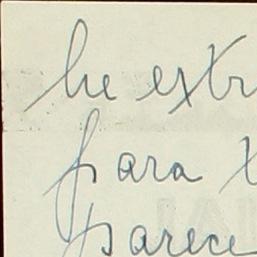 he extr
para
parece